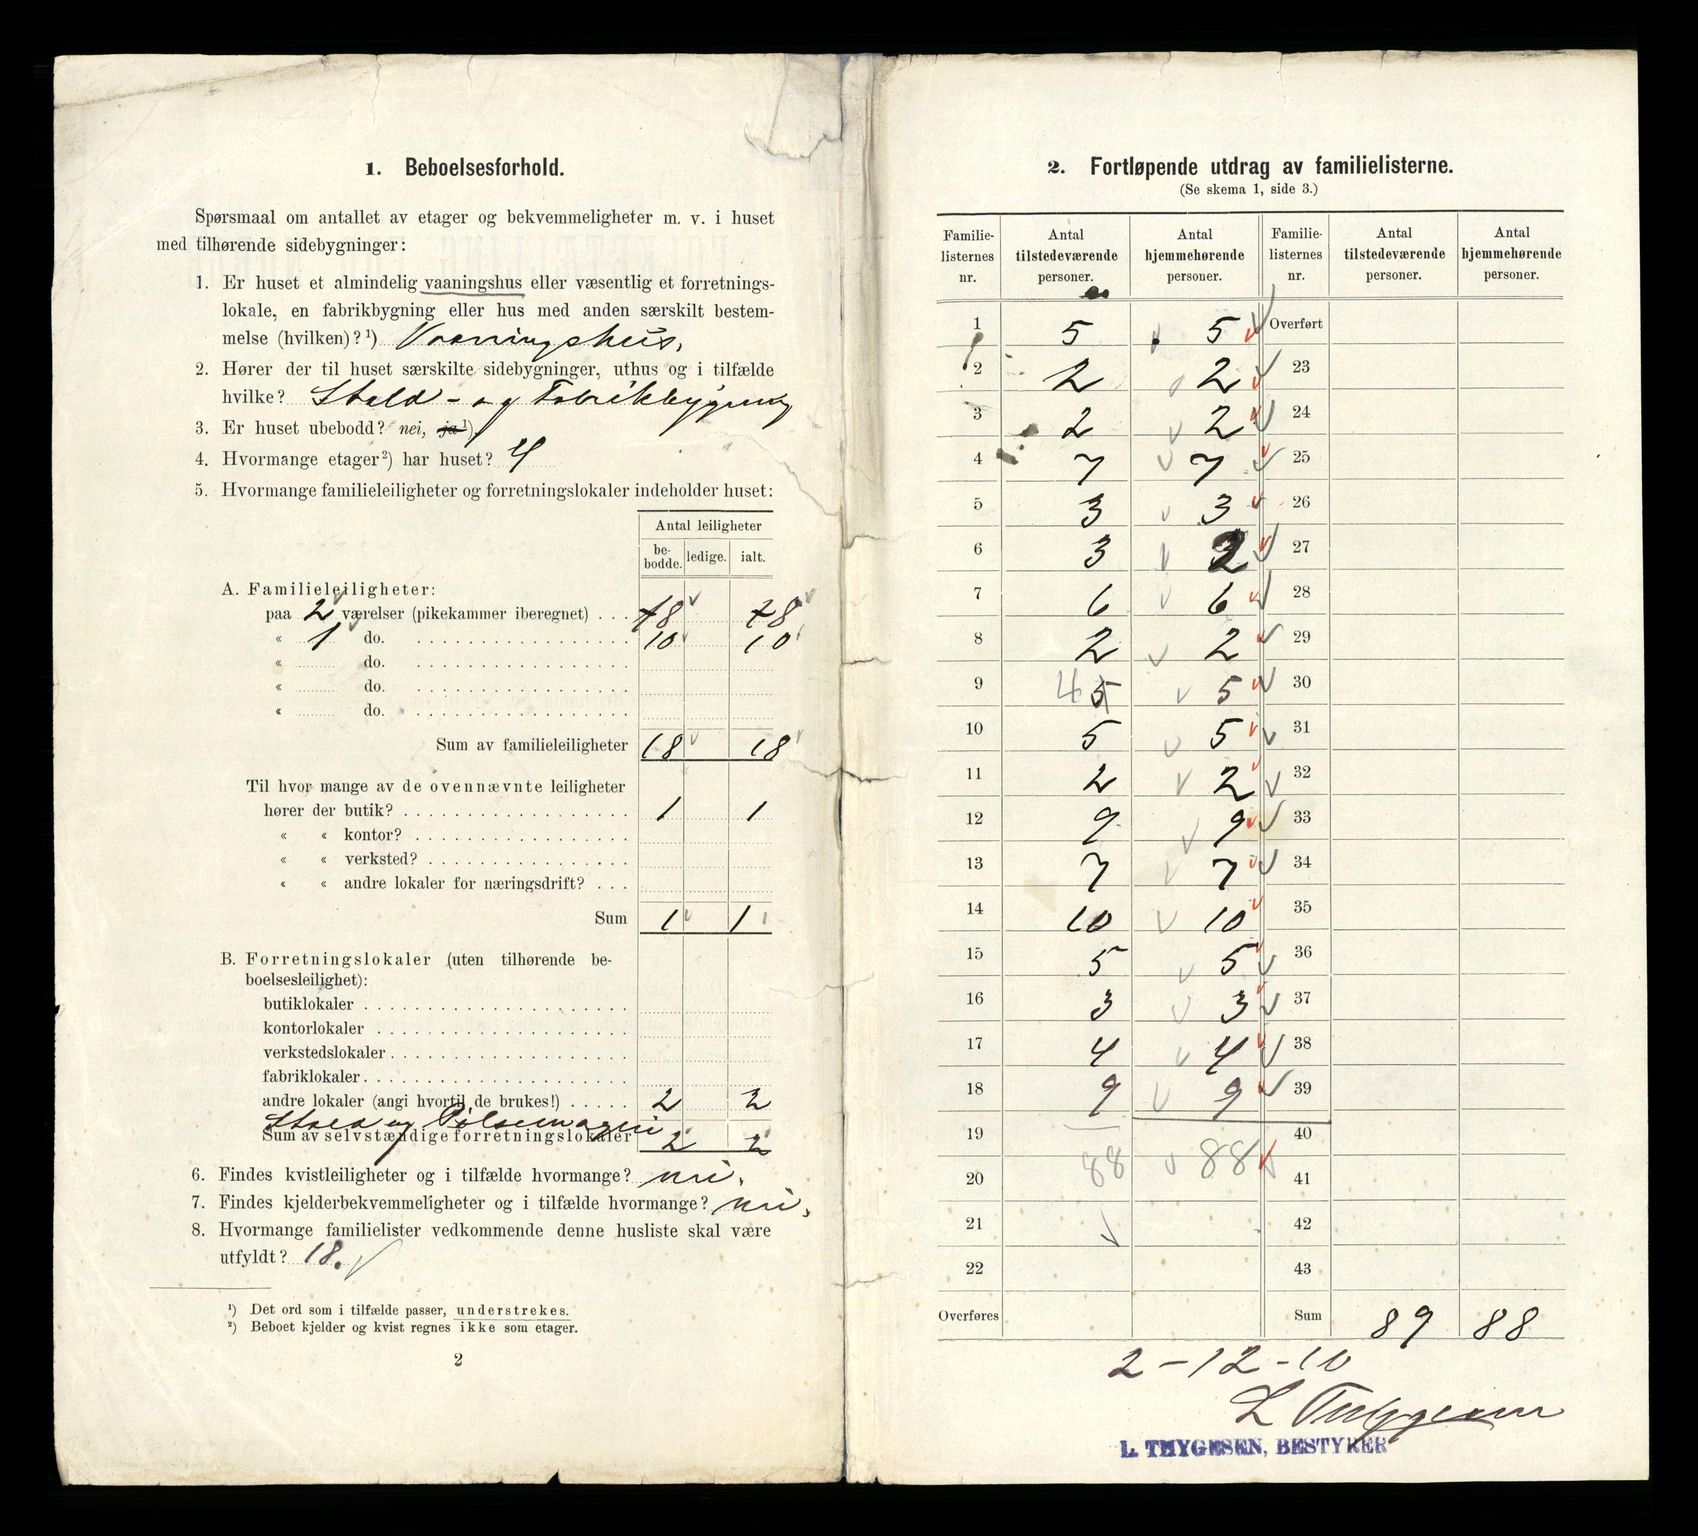 1. Beboelsesforhold.
Spørsmaal om antallet av etager og bekvemmeligheter m. v. i huset
med tilhørende sidebygninger:
1. Er huset et almindelig vaaningshus eller væsentlig et forretnings-
lokale, en fabrikbygning eller hus med anden særskilt bestem-
melse (hvilken)?¹) Vaaningshus.
2. Hører der til huset særskilte sidebygninger, uthus og i tilfælde
hvilke? Stald- og Fabrikbygning
3. Er huset ubebodd? nei, ja¹)
4. Hvormange etager²) har huset? 4
5. Hvormange familieleiligheter og forretningslokaler indeholder huset:
Antal leiligheter
be-bodde. ledige. ialt.
A. Familieleiligheter:
paa 2 værelser (pikekammer iberegnet) . . . 8 8
« 1 do. 10 10
« do.
« do.
« do.
Sum av familieleiligheter 18 18
Til hvor mange av de ovennævnte leiligheter
hører der butik? 1 1
« « kontor?
« « verksted?
« « andre lokaler for næringsdrift? . . .
Sum 1 1
B. Forretningslokaler (uten tilhørende be-
boelsesleilighet):
butiklokaler
kontorlokaler
verkstedslokaler
fabriklokaler
andre lokaler (angi hvortil de brukes!) 2 2
Stald og Pølsemageri
Sum av selvstændige forretningslokaler 2 2
6. Findes kvistleiligheter og i tilfælde hvormange? nei.
7. Findes kjelderbekvemmeligheter og i tilfælde hvormange? nei.
8. Hvormange familielister vedkommende denne husliste skal være
utfyldt? 18.
¹) Det ord som i tilfælde passer, understrekes.
²) Beboet kjelder og kvist regnes ikke som etager.
2
2. Fortløpende utdrag av familielisterne.
(Se skema 1, side 3.)
Familie-listernes nr. Antal tilstedeværende personer. Antal hjemmehørende personer. Familie-listernes nr. Antal tilstedeværende personer. Antal hjemmehørende personer.
1 5 5 Overført
2 2 2 23
3 2 2 24
4 7 7 25
5 3 3 26
6 3 2 27
7 6 6 28
8 2 2 29
9 4 5 5 30
10 5 5 31
11 2 2 32
12 9 9 33
13 7 7 34
14 10 10 35
15 5 5 36
16 3 3 37
17 4 4 38
18 9 9 39
19 40
20 88 88 41
21 42
22 43
Overføres Sum 89 88
2-12-10
L Thygesen
L. THYGESEN, BESTYRER